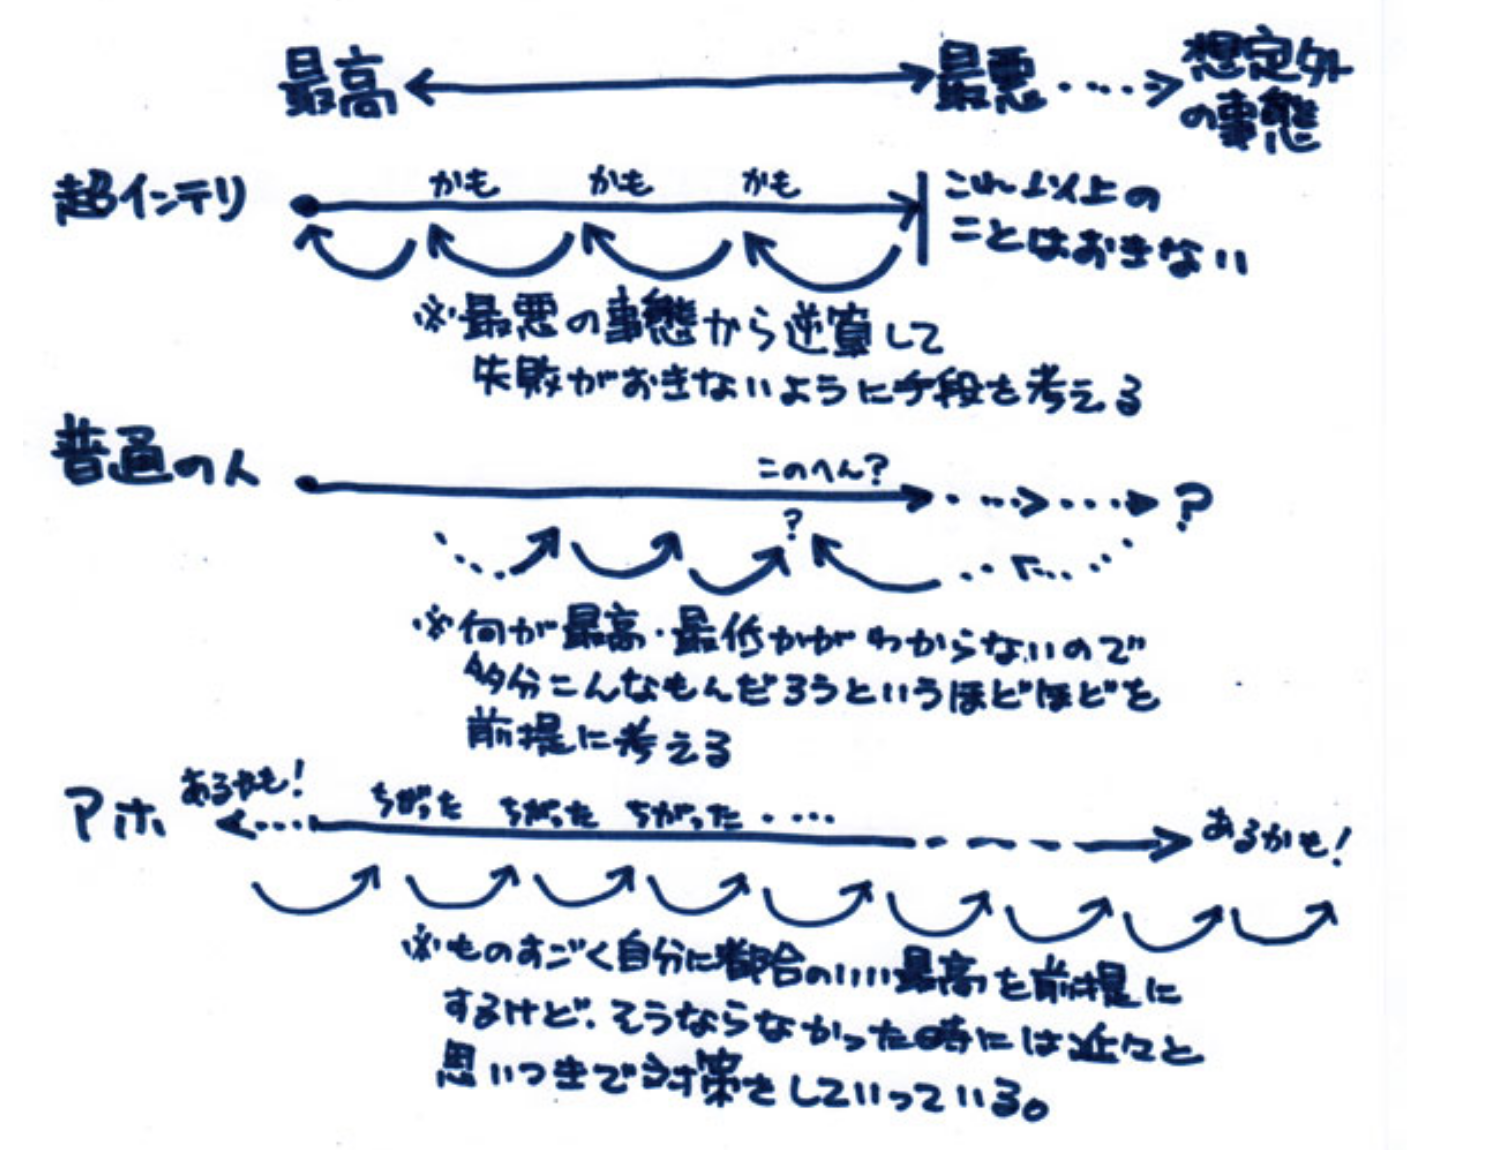 最高
最悪
想定外
の事態
超インテリ
かも かも かも
これ以上の
ことはおきない
※最悪の事態から逆算して
失敗がおきないように手段を考える
普通の人
このへん?
?
?
※何が最高・最低かがわからないので
多分こんなもんだろうというほどほどを
前提に考える
アホ
あるかも!
ちがった ちがった ちがった ・・・・
あるかも!
※ものすごく自分に都合のいい最高を前提に
するけど、そうならなかった時には
思いつきで対策をしていっている。